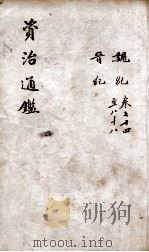 魏紀 卷七十四
晉紀 至八十八
資治通鑑